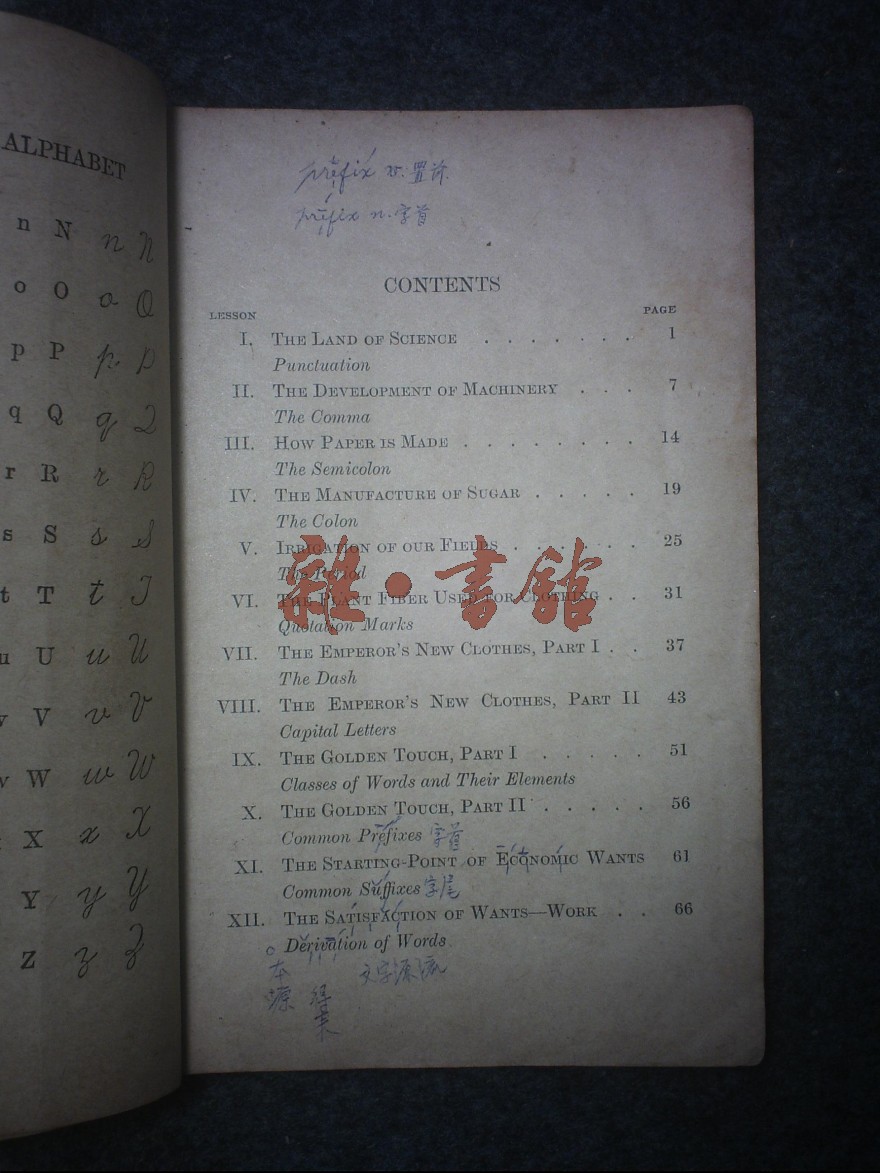 ALPHABET
n N n N
o O o O
p P p P
q Q q Q
r R r R
s S s S
t T t T
u U u U
V v V
W w W
X x X
Y y Y
Z z Z
prefix v. 置於
prefix n. 字首
CONTENTS
LESSON PAGE
I. THE LAND OF SCIENCE . . . . . . . 1
Punctuation
II. THE DEVELOPMENT OF MACHINERY . . . 7
The Comma
III. HOW PAPER IS MADE . . . . . . . . 14
The Semicolon
IV. THE MANUFACTURE OF SUGAR . . . . . 19
The Colon
V. IRRIGATION OF OUR FIELDS . . . . . . 25
The Period
VI. THE PLANT FIBER USED FOR CLOTHING . . 31
Quotation Marks
VII. THE EMPEROR'S NEW CLOTHES, PART I . . 37
The Dash
VIII. THE EMPEROR'S NEW CLOTHES, PART II 43
Capital Letters
IX. THE GOLDEN TOUCH, PART I . . . . . 51
Classes of Words and Their Elements
X. THE GOLDEN TOUCH, PART II . . . . . 56
Common Prefixes 字首
XI. THE STARTING-POINT OF ECONOMIC WANTS 61
Common Suffixes 字尾
XII. THE SATISFACTION OF WANTS—WORK . . 66
Derivation of Words
本源 得來 文字源流
雜·書館